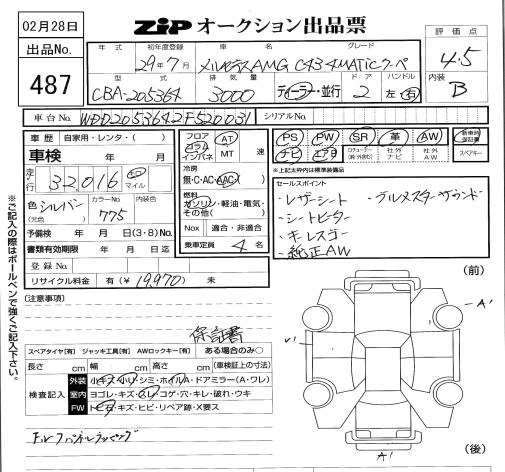 02月28日
ZiP オークション出品票
出品No.
487
年式 初年度登録 車名 グレード
29年7月 メルセデスAMG C43 4MATICクーペ
型式 排気量 ドア ハンドル
CBA-205364 3000 ディーラー・並行 2 左・右
評価点
4.5
内装
B
車台No. WDD2053642F520031 シリアルNo.
車歴 自家用・レンタ・( )
車検 年 月
走行 32,016 km マイル
色 シルバー カラーNo. 775 内装色
(元色)
予備検 年 月 日(3・8)No.
書類有効期限 年 月 日迄
登録No.
リサイクル料金 有(¥19,970) 未
フロア コラム インパネ AT MT 速
冷房
無・C・AC・AAC
燃料
ガソリン・軽油・電気・
その他( )
Nox 適合・非適合
乗車定員 4名
PS PW SR 革 AW 新車時保証書
ナビ エアB 社外ナビ 社外AW スペアキー
※上記太枠内は標準装備品
セールスポイント
・レザーシート
・シートヒーター
・キーレスゴー
・純正AW
・ブルメスターサラウンド
※ご記入の際はボールペンで強くご記入下さい。
(注意事項)
保証書
スペアタイヤ[有] ジャッキ工具[有] AWロックキー[有] ある場合のみ○
長さ cm 幅 cm 高さ cm (車検証上の寸法)
検査記入
外装 小キズ・小凹・シミ・ホイルA・ドアミラー(A・ワレ)
室内 ヨゴレ・キズ・スレ・コゲ・穴・キレ・破れ・ウキ
FW トビ石・キズ・ヒビ・リペア跡・X要ス
(前)
A1
A1
(後)